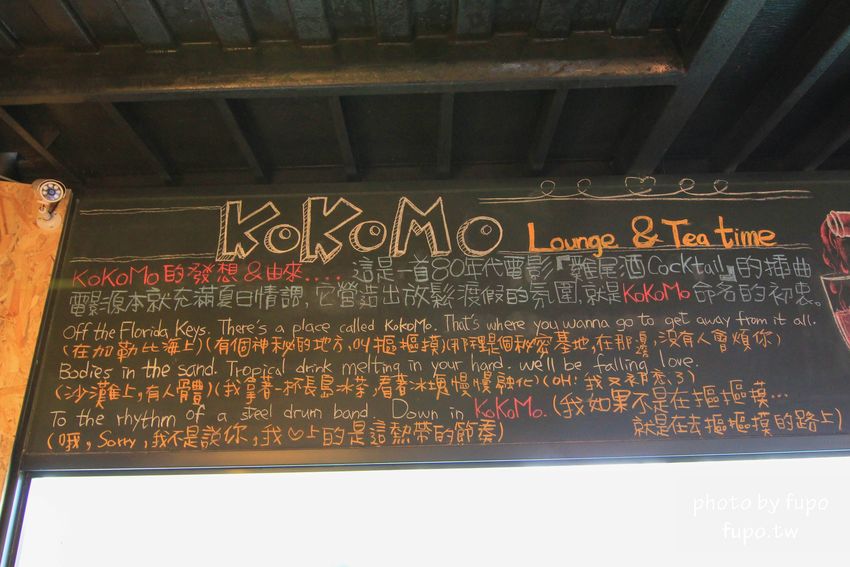 KoKoMo
Lounge & Tea time
KoKoMo的發想&由來.... 這是一首80年代電影『雞尾酒Cocktail』的插曲
電影原本就充滿夏日情調,它營造出放鬆渡假的氛圍,就是KoKoMo命名的初衷。
Off the Florida Keys. There's a place called KoKoMo. That's where you wanna go to get away from it all.
(在加勒比海上)(有個神秘的地方,叫摳摳摸)(那裡是個秘密基地,在那邊,沒有人會煩你)
Bodies in the sand. Tropical drink melting in your hand. we'll be falling love.
(沙灘上,有人體)(我拿著一杯長島冰茶,看著冰塊慢慢融化)(OH!我又初戀了)
To the rhythm of a steel drum band. Down in KoKoMo. (我如果不是在摳摳摸...
(哦,Sorry,我不是說你,我♡上的是這熱帶的節奏) 就是在去摳摳摸的路上)
photo by fupo
fupo.tw